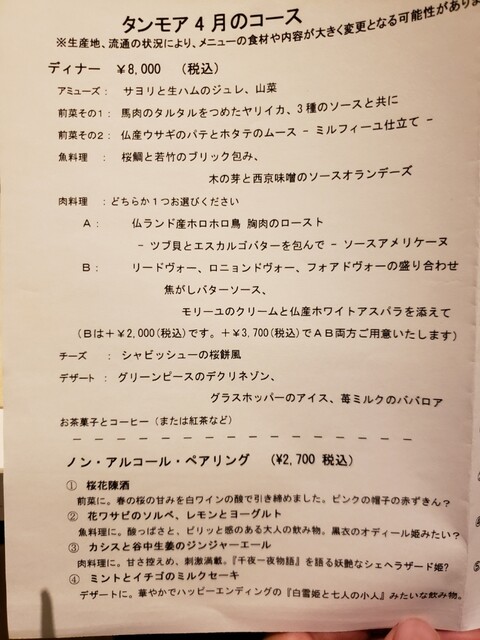 タンモア 4月のコース
※生産地、流通の状況により、メニューの食材や内容が大きく変更となる可能性がありま
ディナー ￥8,000 (税込)
アミューズ： サヨリと生ハムのジュレ、山菜
前菜その1： 馬肉のタルタルをつめたヤリイカ、3種のソースと共に
前菜その2： 仏産ウサギのパテとホタテのムース - ミルフィーユ仕立て -
魚料理 ： 桜鯛と若竹のブリック包み、
木の芽と西京味噌のソースオランデーズ
肉料理 ：どちらか1つお選びください
A： 仏ランド産ホロホロ鳥 胸肉のロースト
- ツブ貝とエスカルゴバターを包んで - ソースアメリケーヌ
B： リードヴォー、ロニョンドヴォー、フォアドヴォーの盛り合わせ
焦がしバターソース、
モリーユのクリームと仏産ホワイトアスパラを添えて
(Bは＋￥2,000(税込)です。＋￥3,700(税込)でAB両方ご用意いたします)
チーズ ： シャビッシューの桜餅風
デザート ： グリーンピースのデクリネゾン、
グラスホッパーのアイス、苺ミルクのババロア
お茶菓子とコーヒー (または紅茶など)
ノン・アルコール・ペアリング (￥2,700 税込)
① 桜花陳酒
前菜に。春の桜の甘みを白ワインの酸で引き締めました。ピンクの帽子の赤ずきん？
② 花ワサビのソルベ、レモンとヨーグルト
魚料理に。酸っぱさと、ピリッと感のある大人の飲み物。黒衣のオディール姫みたい？
③ カシスと谷中生姜のジンジャーエール
肉料理に。甘さ控えめ、刺激満載。『千夜一夜物語』を語る妖艶なシェヘラザード姫?
④ ミントとイチゴのミルクセーキ
デザートに。華やかでハッピーエンディングの『白雪姫と七人の小人』みたいな飲み物。